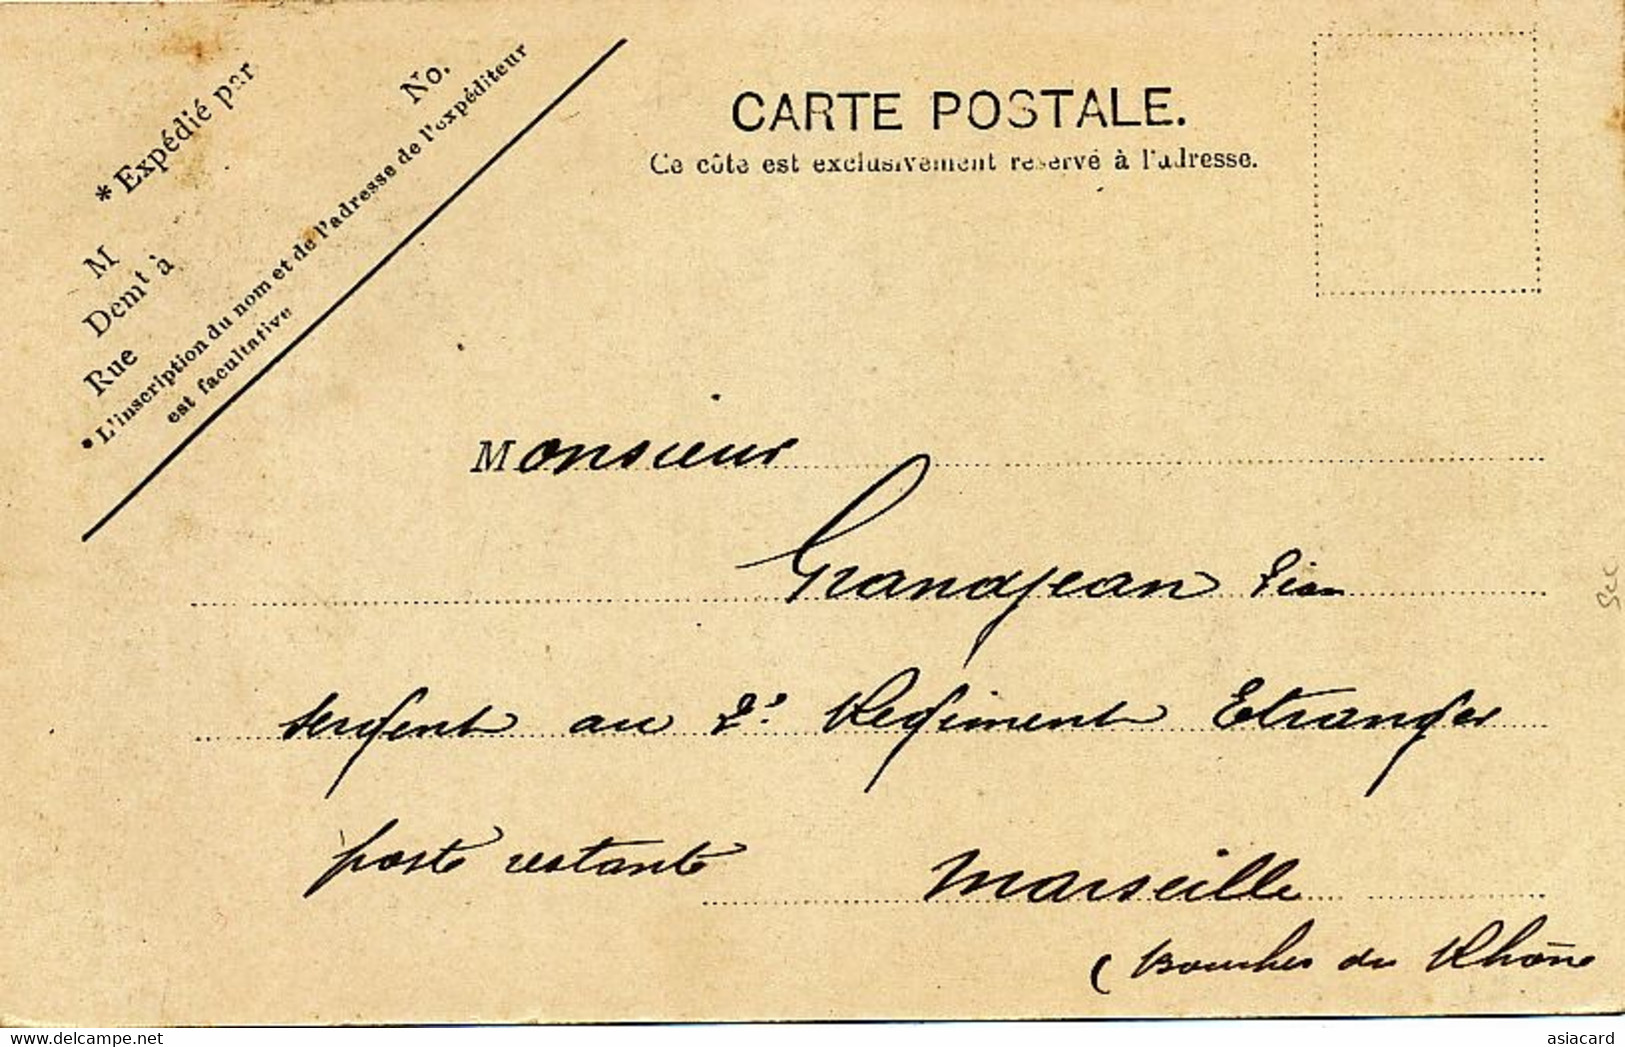 * Expédié par
No.
M
Demt à
Rue
* L'inscription du nom et de l'adresse de l'expéditeur
est facultative
CARTE POSTALE.
Ce côté est exclusivement réservé à l'adresse.
Monsieur
Grandjean
sergent au 2e Regiment Etranger
poste restante Marseille
(Bouches du Rhône
delcampe.net
asiacard